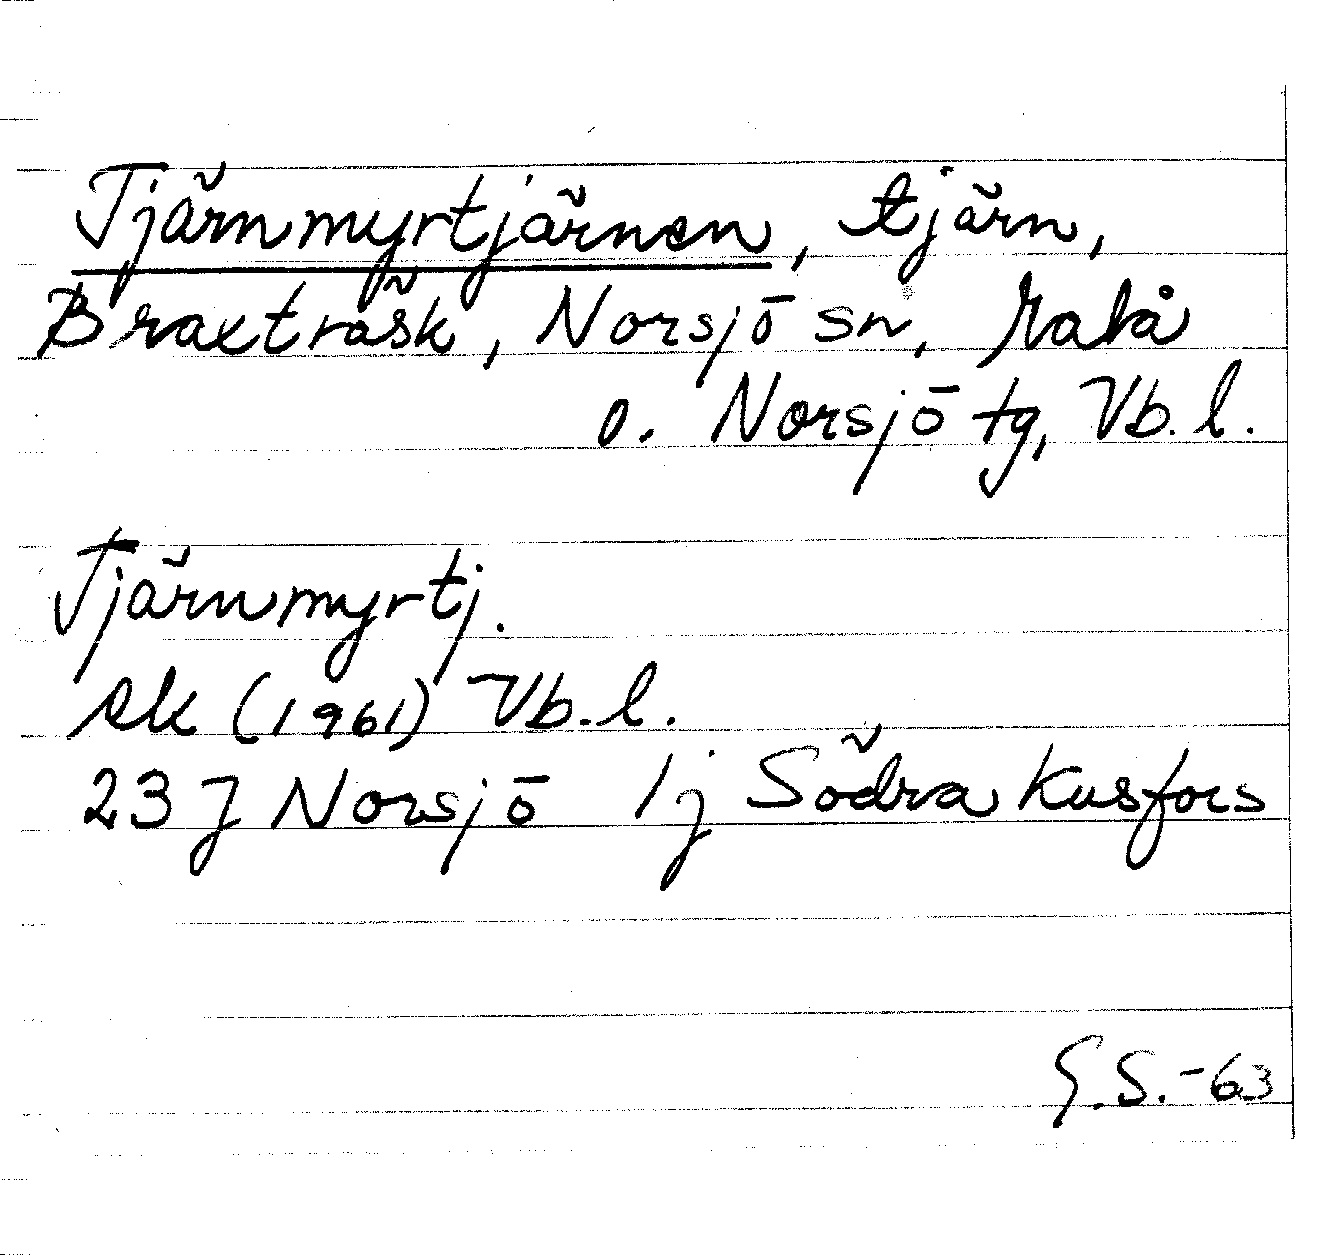 Tjärnmyrtjärnen, tjärn,
Braxträsk, Norsjö sn, Malå
o. Norsjö tg, Vb. l.
Tjärnmyrtj.
ek (1961) Vb. l.
23 J Norsjö 1j Södra Kusfors
G.S.-63